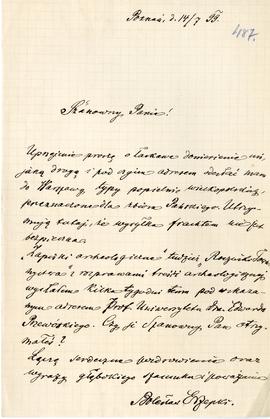 Poznań, d. 14/7
487.
Szanowny Panie!
Uprzejmie proszę o łaskawe doniesienie mi,
jaką drogą i pod czyim adresem odesłać mam
do Warszawy typy popielnic wielkopolskich,
przeznaczone dla zbioru Pańskiego. Utrzy-
mują tutaj, że wysyłka frachtem nie jest
bezpieczna.
Zapiski archeologiczne tudzież Roczniki Towa-
rzystwa z rozprawami treści archeologicznej
wysłałem kilka tygodni temu pod wskaza-
nym adresem Prof. Uniwersytetu Dr.
Czy je Szanowny Pan otrzy-
małeś?
Łączę serdeczne pozdrowienia oraz
wyrazy głębokiego szacunku i poważania
Bolesław Erzepki